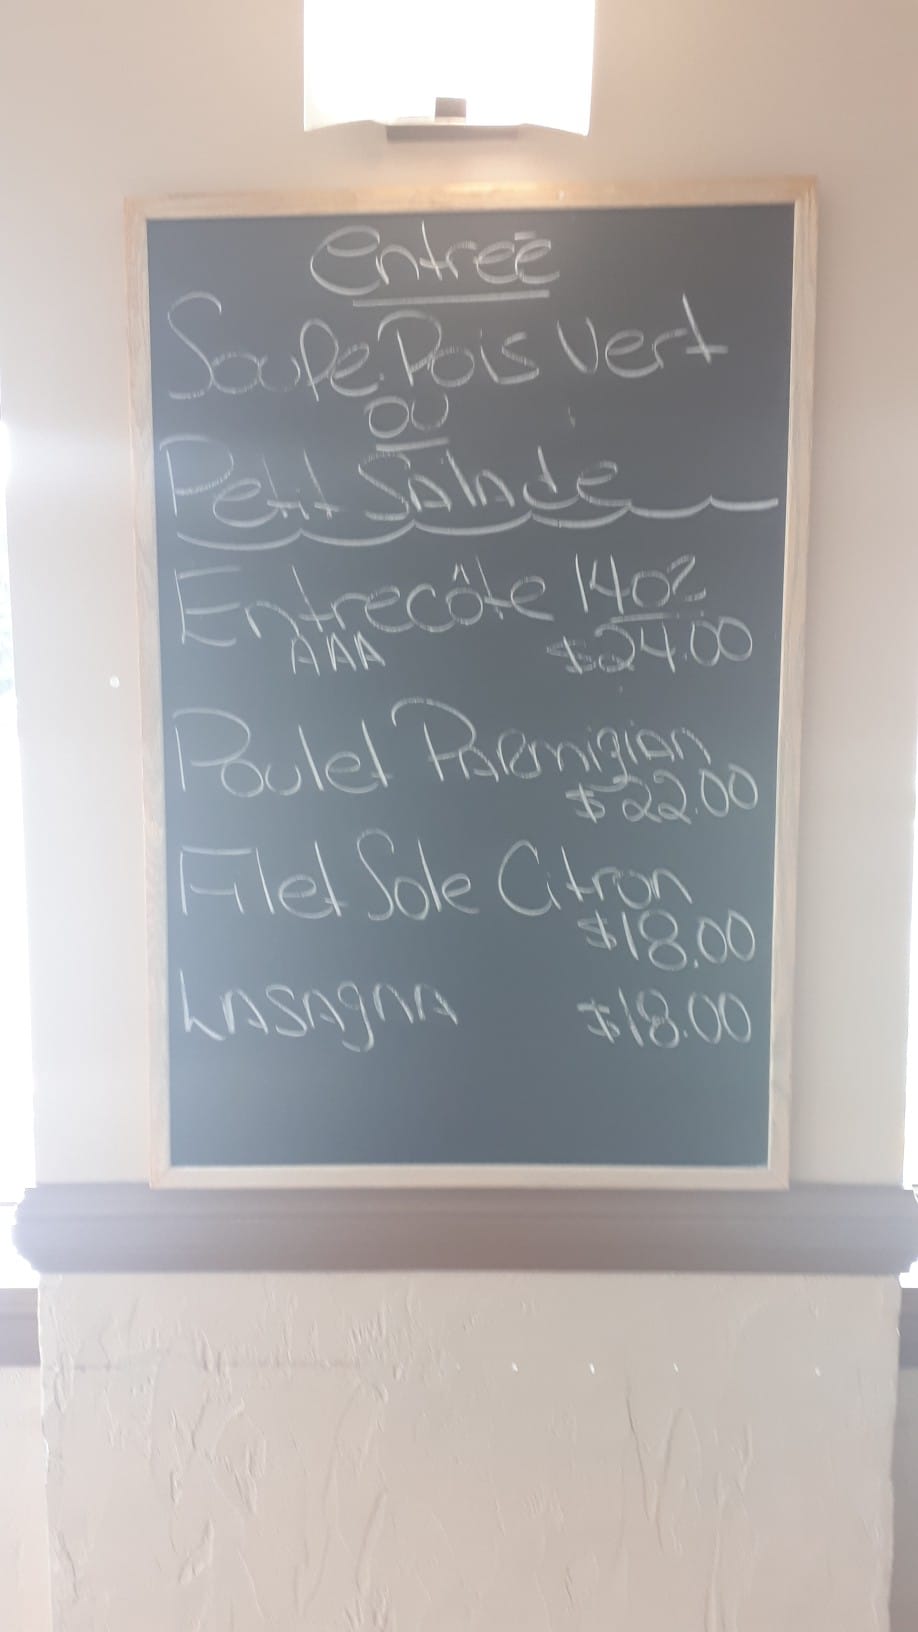 entreé
Soupe Pois Vert
ou
Petit Salade
Entrecôte 14oz
AAA $24.00
Poulet Parmigian
$22.00
Filet Sole Citron
$18.00
Lasagna $18.00